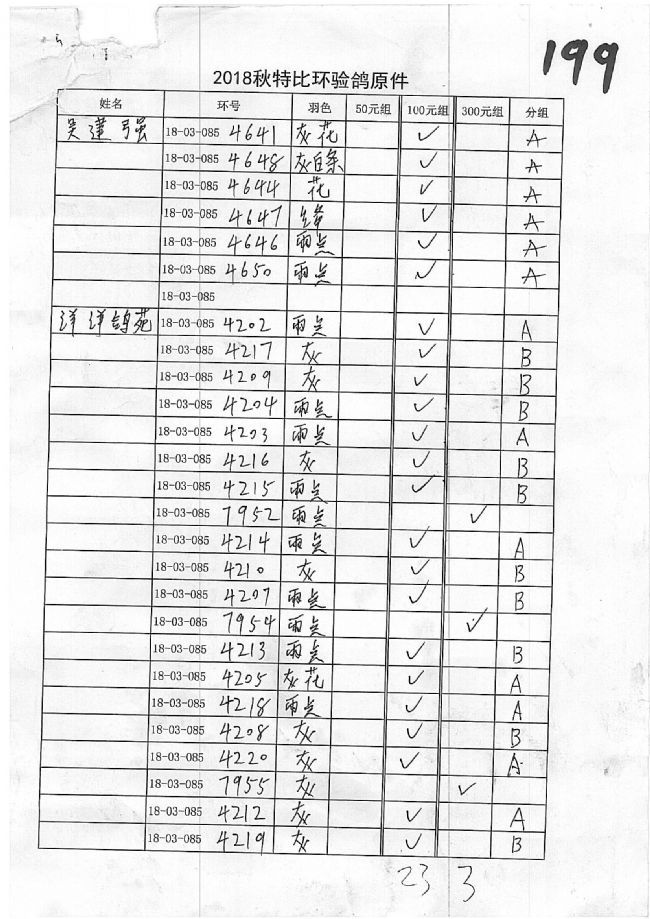 199
2018秋特比环验鸽原件
姓名 环号 羽色 50元组 100元组 300元组 分组
吴建强 18-03-085 4641 灰花 ✓ A
18-03-085 4648 灰白条 ✓ A
18-03-085 4644 花 ✓ A
18-03-085 4647 ✓ A
18-03-085 4646 雨点 ✓ A
18-03-085 4650 雨点 ✓ A
18-03-085
洋洋鸽苑 18-03-085 4202 雨点 ✓ A
18-03-085 4217 灰 ✓ B
18-03-085 4209 灰 ✓ B
18-03-085 4204 雨点 ✓ B
18-03-085 4203 雨点 ✓ A
18-03-085 4216 灰 ✓ B
18-03-085 4215 雨点 ✓ B
18-03-085 7952 雨点 ✓
18-03-085 4214 雨点 ✓ A
18-03-085 4210 灰 ✓ B
18-03-085 4207 雨点 ✓ B
18-03-085 7954 雨点 ✓
18-03-085 4213 雨点 ✓ B
18-03-085 4205 灰花 ✓ A
18-03-085 4218 雨点 ✓ A
18-03-085 4208 灰 ✓ B
18-03-085 4220 灰 ✓ A
18-03-085 7955 灰 ✓
18-03-085 4212 灰 ✓ A
18-03-085 4219 灰 ✓ B
23 3